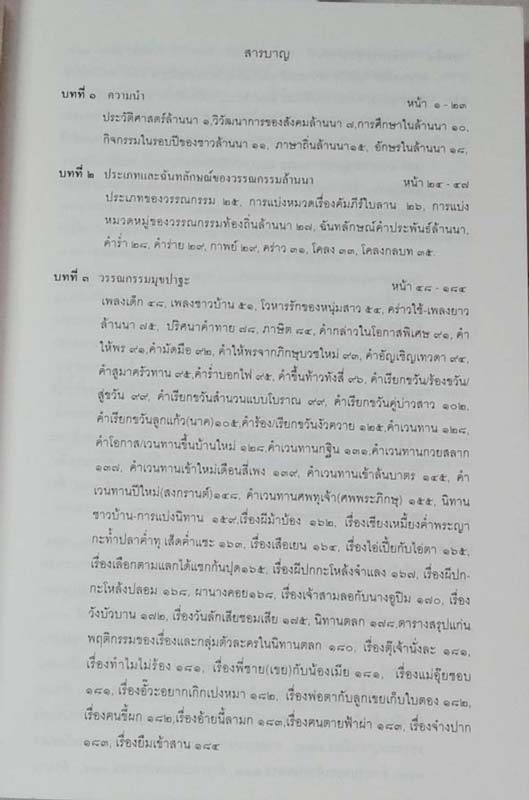 สารบาญ
บทที่ ๑ ความนำ หน้า ๑ - ๒๓
ประวัติศาสตร์ล้านนา ๑,วิวัฒนาการของสังคมล้านนา ๗,การศึกษาในล้านนา ๑๐,
กิจกรรมในรอบปีของชาวล้านนา ๑๑, ภาษาถิ่นล้านนา๑๕, อักษรในล้านนา ๑๘,
บทที่ ๒ ประเภทและฉันทลักษณ์ของวรรณกรรมล้านนา หน้า ๒๔ - ๔๗
ประเภทของวรรณกรรม ๒๕, การแบ่งหมวดเรื่องคัมภีร์ใบลาน ๒๖, การแบ่ง
หมวดหมู่ของวรรณกรรมท้องถิ่นล้านนา ๒๗, ฉันทลักษณ์คำประพันธ์ล้านนา,
คำร่ำ ๒๘, คำร่าย ๒๙, กาพย์ ๒๙, คร่าว ๓๑, โคลง ๓๓, โคลงกลบท ๓๕.
บทที่ ๓ วรรณกรรมมุขปาฐะ หน้า ๔๘ - ๑๘๔
เพลงเด็ก ๔๘, เพลงชาวบ้าน ๕๑, โวหารรักของหนุ่มสาว ๕๔, คร่าวใช้-เพลงยาว
ล้านนา ๗๕, ปริศนาคำทาย ๗๘, ภาษิต ๘๔, คำกล่าวในโอกาสพิเศษ ๙๑, คำ
ให้พร ๙๑,คำมัดมือ ๙๒, คำให้พรจากภิกษุบวชใหม่ ๙๓, คำอัญเชิญเทวดา ๙๔,
คำสูมาครัวทาน ๙๕,คำร่ำบอกไฟ ๙๕, คำขึ้นท้าวทังสี่ ๙๖, คำเรียกขวัน/ร้องขวัน/
สู่ขวัน ๙๙, คำเรียกขวันสำนวนแบบโบราณ ๙๙, คำเรียกขวันคู่บ่าวสาว ๑๐๒,
คำเรียกขวันลูกแก้ว(นาค)๑๐๕,คำร้อง/เรียกขวันงัวควาย ๑๒๕,คำเวนทาน ๑๒๘,
คำโอกาส/เวนทานขึ้นบ้านใหม่ ๑๒๘,คำเวนทานกฐิน ๑๓๑,คำเวนทานกวยสลาก
๑๓๗, คำเวนทานเข้าใหม่เดือนสี่เพง ๑๓๙, คำเวนทานเข้าล้นบาตร ๑๔๕, คำ
เวนทานปีใหม่(สงกรานต์)๑๔๘, คำเวนทานศพทุเจ้า(ศพพระภิกษุ) ๑๕๕, นิทาน
ชาวบ้าน-การแบ่งนิทาน ๑๕๙,เรื่องผีม้าบ้อง ๑๖๒, เรื่องเชียงเหมี้ยงค่ำพระญา
กะท้ำปลาค่ำทุ เส็ดค่ำแซะ ๑๖๓, เรื่องเสือเยน ๑๖๔, เรื่องไอ่เปี้ยกับไอ่ตา ๑๖๕,
เรื่องเลือกตามแลกได้แขกก้นปุด๑๖๕, เรื่องผีปกกะโหล้งจำแลง ๑๖๗, เรื่องผีปก-
กะโหล้งปลอม ๑๖๘, ผานางคอย๑๖๘, เรื่องเจ้าสามลอกับนางอูปิม ๑๗๐, เรื่อง
วังบัวบาน ๑๗๒, เรื่องวันลักเสียชอมเสีย ๑๗๕, นิทานตลก ๑๗๘,ตารางสรุปแก่น
พฤติกรรมของเรื่องและกลุ่มตัวละครในนิทานตลก ๑๘๐, เรื่องตุ๊เจ้านั่งละ ๑๘๑,
เรื่องทำไมไม่ร้อง ๑๘๑, เรื่องพี่ชาย(เขย)กับน้องเมีย ๑๘๑, เรื่องแม่อุ๊ยชอบ
๑๘๑, เรื่องอั๊วะอยากเกิกเปงหมา ๑๘๒, เรื่องพ่อตากับลูกเขยเก็บใบตอง ๑๘๒,
เรื่องคนขี้ผก ๑๘๒,เรื่องอ้ายนี้ลามก ๑๘๓,เรื่องคนตายฟ้าผ่า ๑๘๓, เรื่องจ๋างปาก
๑๘๓, เรื่องยืมเข้าสาน ๑๘๔